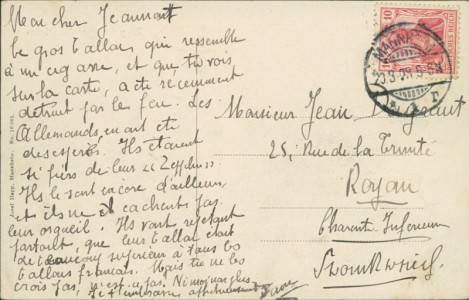 Mon cher Jeannott
Ce gros ballon, qui ressemble
à un cigare, et que tu vois
sur la carte, a été récemment
détruit par le feu. Les
Allemands, en ont été
désespérés. Ils étaient
si fiers de leur "Zeppelin"
Ils le sont encore d'ailleurs
et ils ne cachent pas
leur orgueil. Ils vont répétant
partout, que leur ballon était
de beaucoup supérieur à tous les
ballons français. Mais tu ne le
crois pas, n'est-ce pas. Ni moi non plus.
Je t'embrasse affectueusement
Monsieur Jean
25, Rue de la Trinité
Royan
Charente Inférieure
Frankreich
Josef Hopp, Mannheim
MANNHEIM
DEUTSCHES REICH
10